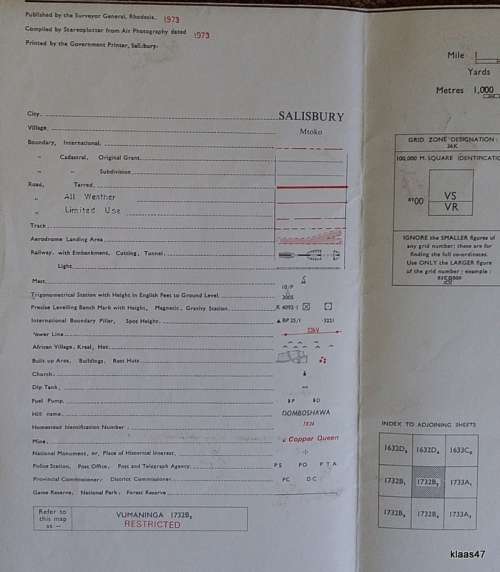 Published by the Surveyor General, Rhodesia. 1973
Compiled by Stereoplotter from Air Photography dated 1973
Printed by the Government Printer, Salisbury.
City SALISBURY
Village Mtoko
Boundary, International,
„ Cadastral, Original Grant
„ „ Subdivision
Road, Tarred
„ All Weather
„ Limited Use
Track
Aerodrome Landing Area
Railway, with Embankment, Cutting, Tunnel
Light
Mast
Trigonometrical Station with Height in English Feet to Ground Level
Precise Levelling Bench Mark with Height, Magnetic, Gravity Station
International Boundary Pillar, Spot Height BP 25/1 ·3221
Power Line 33kV
African Village, Kraal, Hut
Built up Area, Buildings, Rest Huts
Church
Dip Tank
Fuel Pump BP BD
Hill name DOMBOSHAWA
Homestead Identification Number
Mine Copper Queen
National Monument, or, Place of Historical Interest
Police Station, Post Office, Post and Telegraph Agency PS PO PTA
Provincial Commissioner, District Commissioner PC DC
Game Reserve, National Park, Forest Reserve
Refer to this map as —
VUMANINGA 1732B
RESTRICTED
Mile
Yards
Metres 1,000
GRID ZONE DESIGNATION:
36K
100,000 M. SQUARE IDENTIFICATIO
VS
VR
IGNORE the SMALLER figures of
any grid number; these are for
finding the full co-ordinates.
Use ONLY the LARGER figure
of the grid number; example:
INDEX TO ADJOINING SHEETS
1632D 1632D 1633C
1732B 1732B 1733A
1732B 1732B 1733A
klaas47